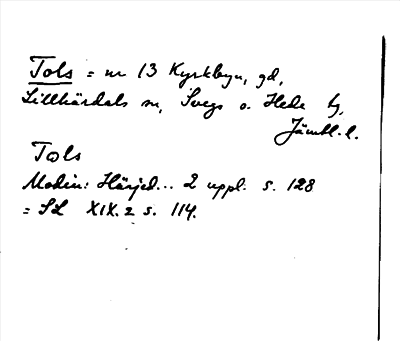 Tols = nr 13 Kyrkbyn, gd,
Lillhärdals sn, Svegs o. Hede tg,
Jämtl. l.
Tols
Modin: Härjed... 2 uppl. s. 128
= SL XIX. 2 s. 114.